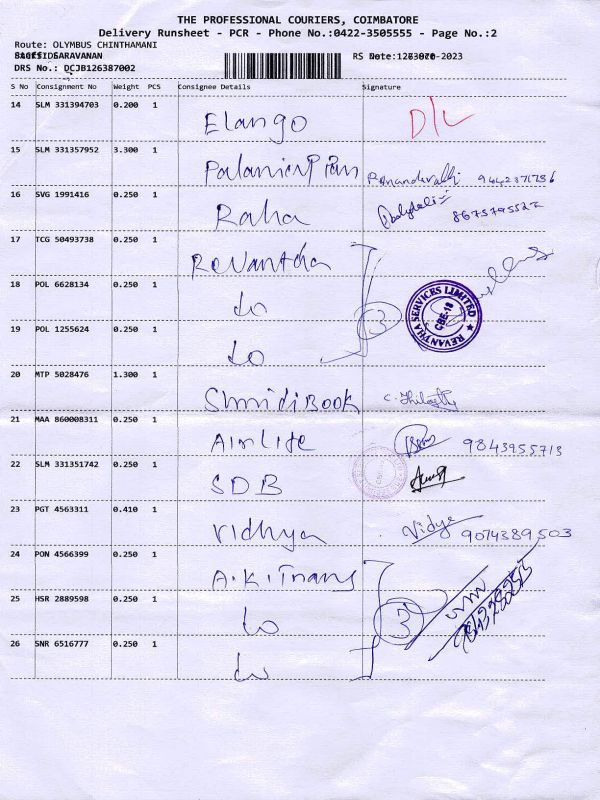 THE PROFESSIONAL COURIERS, COIMBATORE
Delivery Runsheet - PCR - Phone No.:0422-3505555 - Page No.:2
Route: OLYMBUS CHINTHAMANI
SARAVANAN
RS Date: -2023
DRS No.: DCJB126387002
S No Consignment No Weight PCS Consignee Details Signature
14 SLM 331394703 0.200 1 Elango D/L
15 SLM 331357952 3.300 1
16 SVG 1991416 0.250 1 Raha
17 TCG 50493738 0.250 1 Revantha
18 POL 6628134 0.250 1 do
3
REVANTHA SERVICES LIMITED
CBE-18
19 POL 1255624 0.250 1 do
20 MTP 5028476 1.300 1
21 MAA 860008311 0.250 1 Airlife 9843955713
22 SLM 331351742 0.250 1 SDB
23 PGT 4563311 0.410 1 Vidhya Vidya 9074389503
24 PON 4566399 0.250 1 A.K.Trans
25 HSR 2889598 0.250 1 do 3
26 SNR 6516777 0.250 1 do